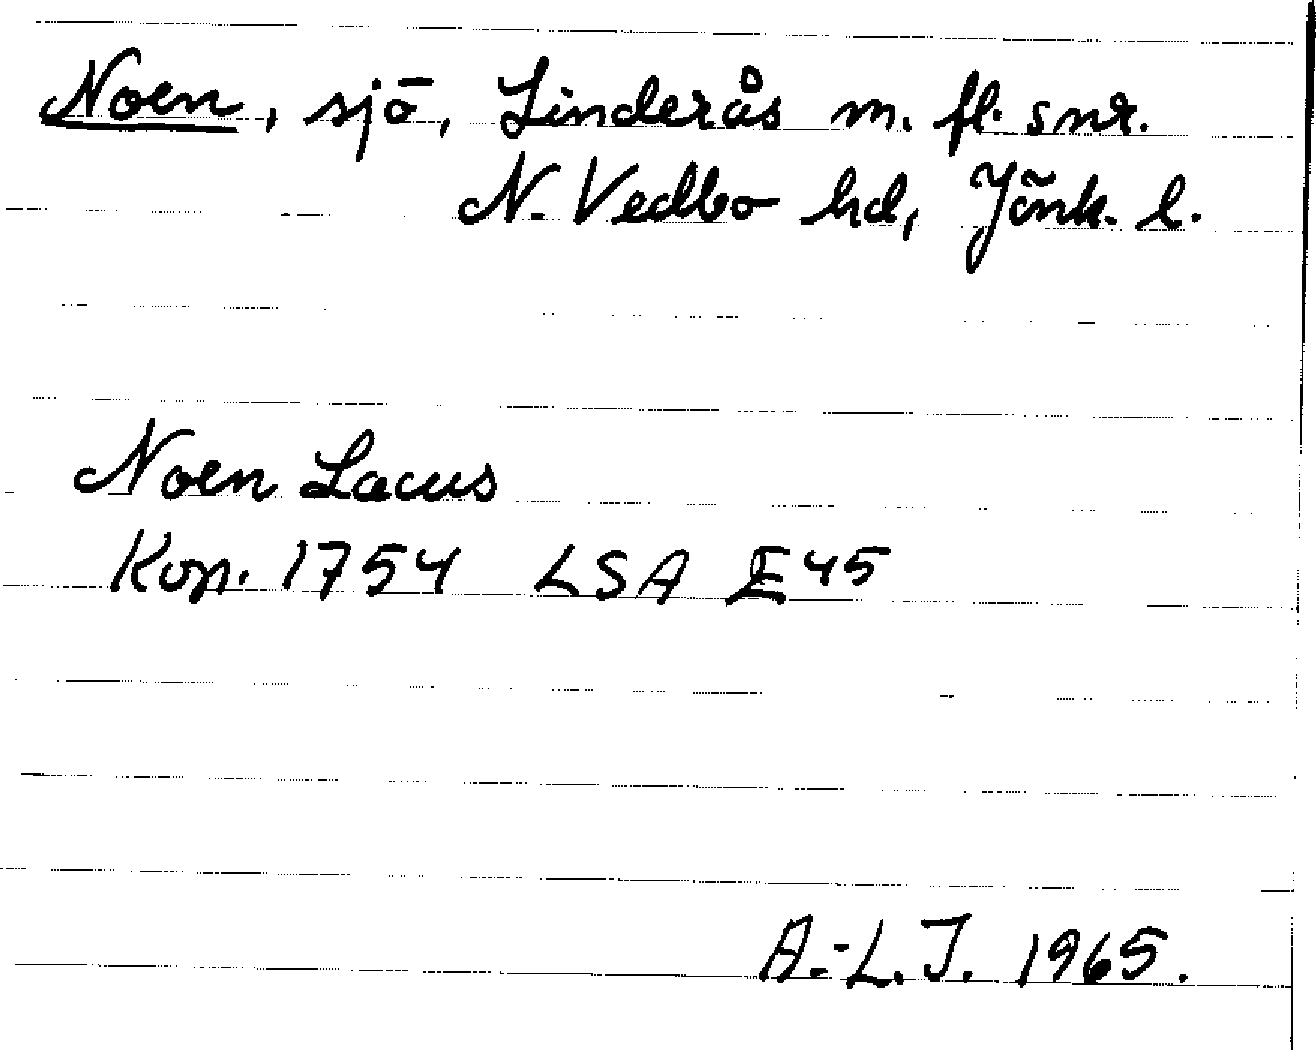 Noen, sjö, Linderås m. fl. snr.
N. Vedbo hd, Jönk. l.
Noen Lacus
Kop. 1754 LSA E45
A.-L. J. 1965.